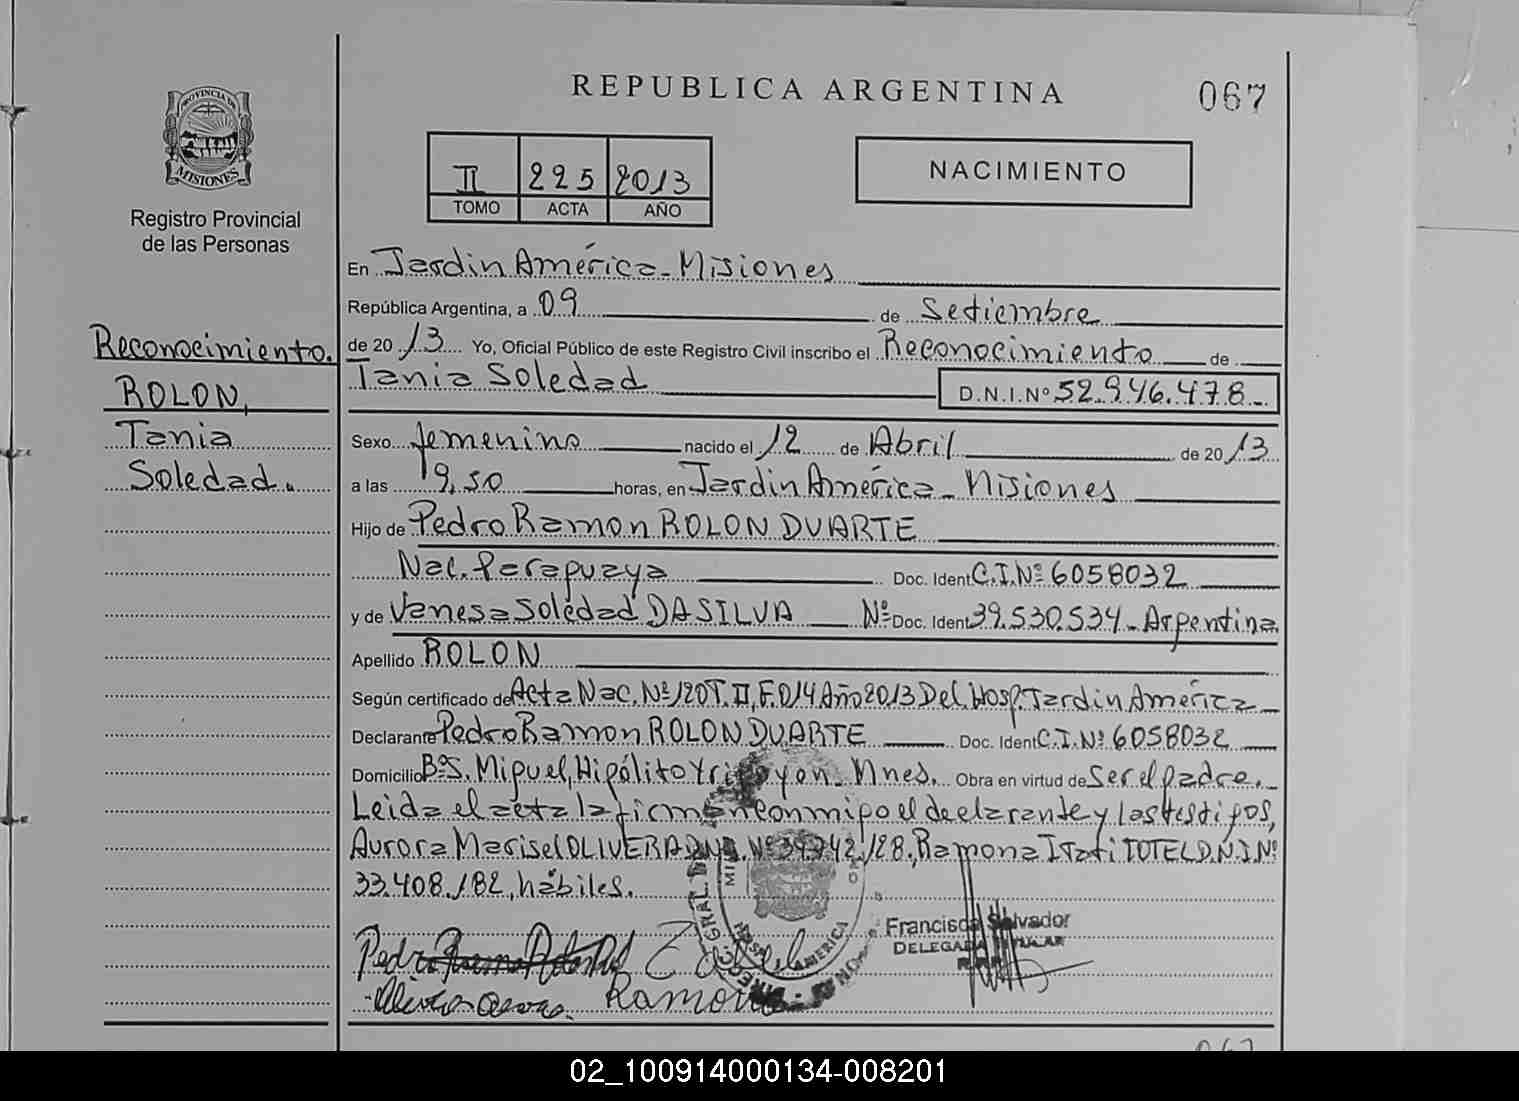 REPUBLICA ARGENTINA
067
PROVINCIA DE
MISIONES
Registro Provincial
de las Personas
II 225 2013
TOMO ACTA AÑO
NACIMIENTO
Reconocimiento.
ROLON,
Tania
Soledad.
En Jardin América - Misiones
República Argentina, a 09 de Setiembre
de 2013 Yo, Oficial Público de este Registro Civil inscribo el Reconocimiento de
Tania Soledad D.N.I.Nº 52.946.478.-
Sexo femenino nacido el 12 de Abril de 2013
a las 19,50 horas, en Jardin América - Misiones
Hijo de Pedro Ramon ROLON DUARTE
Nac. Paraguaya Doc. Ident C.I.Nº 6058032
y de Vanesa Soledad DA SILVA Nº Doc. Ident 39.530.534 - Argentina
Apellido ROLON
Según certificado de Acta Nac. Nº 120 T. II, F. 014 Año 2013 Del Hosp. Jardin América -
Declarante Pedro Ramon ROLON DUARTE Doc. Ident C.I.Nº 6058032
Domicilio Bº S. Miguel, Hipólito Yrigoyen Mnes. Obra en virtud de ser el padre.
Leida el acta la firman conmigo el declarante y las testigos,
Aurora Marisel OLIVERA D.N.I. Nº 39.742.128., Ramona Itati TOTEL D.N.I.Nº
33.408.182, hábiles.
Francisca Salvador
DELEGADA TITULAR
Pedro
Ramona
02_100914000134-008201